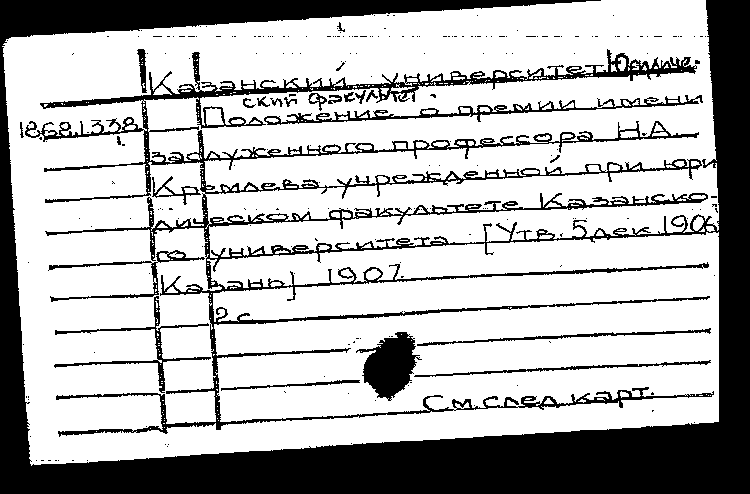 Казанский университет. Юридиче-
ский факультет.
18.68.1.338 Положение о премии имени
заслуженного профессора Н.А.
Кремлева, учрежденной при юри
дическом факультете Казанско-
го университета. [Утв. 5 дек. 1906
Казань] 1907.
2 с.
См. след. карт.